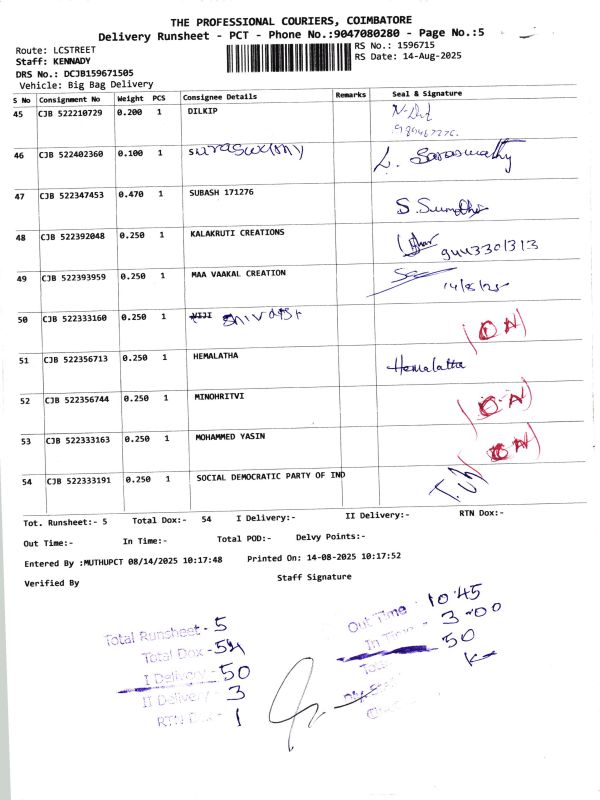 THE PROFESSIONAL COURIERS, COIMBATORE
Delivery Runsheet - PCT - Phone No.:9047080280 - Page No.:5
Route: LCSTREET
RS No.: 1596715
Staff: KENNADY
RS Date: 14-Aug-2025
DRS No.: DCJB159671505
Vehicle: Big Bag Delivery
S No Consignment No Weight PCS Consignee Details Remarks Seal & Signature
45 CJB 522210729 0.200 1 DILKIP
46 CJB 522402360 0.100 1 L. Saraswathy
47 CJB 522347453 0.470 1 SUBASH 171276
48 CJB 522392048 0.250 1 KALAKRUTI CREATIONS
49 CJB 522393959 0.250 1 MAA VAAKAL CREATION 14/8/25
50 CJB 522333160 0.250 1 VIJI
51 CJB 522356713 0.250 1 HEMALATHA Hemalatha
52 CJB 522356744 0.250 1 MINOHRITVI
53 CJB 522333163 0.250 1 MOHAMMED YASIN
54 CJB 522333191 0.250 1 SOCIAL DEMOCRATIC PARTY OF IND
Tot. Runsheet:- 5 Total Dox:- 54 I Delivery:- II Delivery:- RTN Dox:-
Out Time:- In Time:- Total POD:- Delvy Points:-
Entered By :MUTHUPCT 08/14/2025 10:17:48 Printed On: 14-08-2025 10:17:52
Verified By Staff Signature
Total Runsheet - 5
Total Dox - 54
I Delivery - 50
II Delivery - 3
RTN Dox - 1
Out Time - 10.45
In Time - 3-00
50